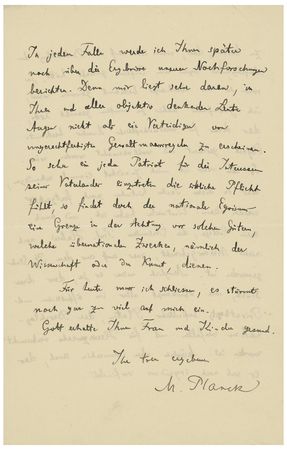 In jedem Falle werde ich Ihnen später
noch über die Ergebnisse unserer Nachforschungen
berichten. Denn mir liegt sehr daran, in
Ihren und aller objektiv denkenden Leute
Augen nicht als ein Verteidiger von
ungerechtfertigten Gewaltmassregeln zu erscheinen.
So sehr ein jeder Patriot für die Interessen
seines Vaterlandes einzutreten die sittliche Pflicht
fühlt, so findet doch der nationale Egoismus
eine Grenze in der Achtung vor solchen Gütern,
welche übernationalen Zwecken, nämlich der
Wissenschaft oder der Kunst, dienen.
Für heute muss ich schliessen, es stürmt
noch gar zu viel auf mich ein.
Gott erhalte Ihnen Frau und Kinder gesund.
Ihr treu ergebener
M. Planck